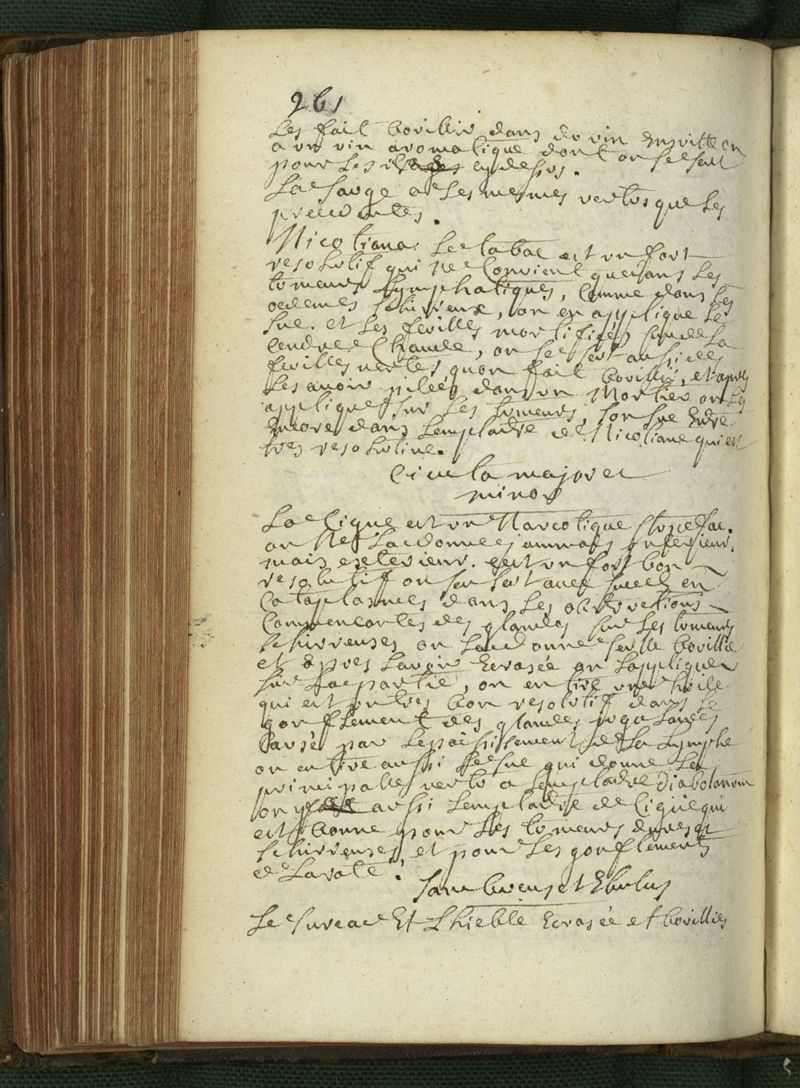 261
Les fait bovillir dans du vin ensuitte on
a un vin aromatique dont on se sert
pour Les cy dessus.
La sauge a Les mesmes vertus que Les
precedentes.
Nicotiana. Le tabac est un fort
resolutif qui ne Convient que dans Les
tumeurs Lymphatiques, Comme dans Les
oedemes schirreux, on en applique Le
suc. et Les feuilles mortifiées sur La
Cendre Chaude, on se sert aussi des
feuilles vertes, quon fait bovillir, et apres
Les avoir pilées dans un Mortier on Les
applique sur Les tumeurs, son suc Entre
Encore dans Lemplastre de Nicotiane qui est
tres resolutive.
Cicuta major et
minor
La Cigue est un Narcotique
on Ne La donne jammais Interieur.
mais exterieur. est un fort bon
resolutif on sen sert avec succez en
Cataplasmes dans Les obstructions
Commencantes des glandes sur Les tumeurs
schirreuses on bovillie
et apres Lavoir Ecrasée on Lapplique
sur La partie, on en tire une huille
qui est un tres bon resolutif dans Le
gonflement des glandes
Causé par Lepaississement de La Lymphe
on en tire aussi Le suc qui donne La
principalle vertu a Lemplastre diabotanum
on aussi Lemplastre de Cigue qui
est bonne pour Les tumeurs dures et
schirreuses, et pour Les gonflements
de La rate.
Sambucus et Ebulus
Le sureau Et Lhieble Ecrasée et bovillies